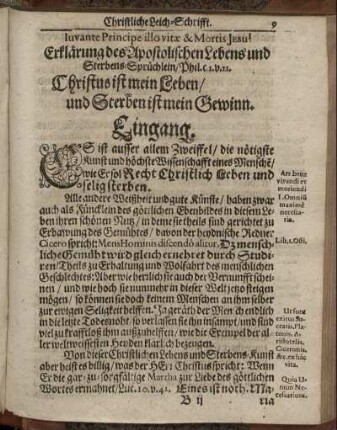 Christliche Leich-Schrifft. 9
Iuvante Principe illo vitæ & Mortis Jesu!
Erklärung des Apostolischen Lebens und
Sterbens-Sprüchlein/ Phil. c. 1. v. 21.
Christus ist mein Leben/
und Sterben ist mein Gewinn.
Eingang.
ES ist ausser allem Zweiffel/ die nötigste
Kunst und höchste Wissenschafft eines Menschē/
wie Er sol Recht Christlich Leben und
selig sterben.
Ars benè
vivendi et
moriendi
1. Omniū
maximè
necessaria.
Alle andere Weißheit und gute Künste/ haben zwar
auch als Füncklein des göttlichen Ebenbildes in diesem Leben
ihren schönen Nutz/ in deme sie theils sind gerichtet zu
Erbawung des Gemühtes/ davon der heydnische Redner
Cicero spricht: Mens Hominis discendô alitur. Dz menschliche
Lib. 1. Offi.
Gemüht wird gleich ernehret durch Studiren/
Theils zu Erhaltung und Wolfahrt des menschlichen
Geschlechtes: Aber wie herrlich sie auch der Vernunfft scheinen/
und wie hoch sie nunmehr in dieser Welt jetzo steigen
mögen/ so können sie doch keinem Menschen an ihm selber
zur ewigen Seligkeit helffen. Ja geräth der Mensch endlich
in die letzte Todesnoht/ so verlassen sie ihn insampt/ und sind
viel zu krafftloß ihm auszuhelffen/ wie die Exempel der aller
weltweisesten Heyden klärlich bezeugen.
Von dieser Christlichen Lebens und Sterbens-Kunst
aber heist es billig/ was der HErr Christus spricht: Wenn
Er die gar-zu-sorgfältige Martha zur Liebe des göttlichen
Wortes ermahnet/ Luc. 10. v. 42. Eines ist noth. Ma-
B ij ria